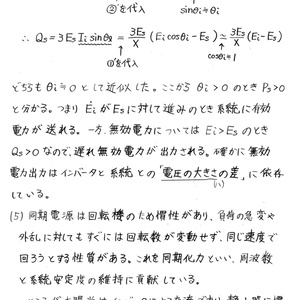 ②を代入 sinθi≒θi
∴ Qs=3EsIi sinθs = 3Es/X (Ei cosθi-Es) ≃ 3Es/X (Ei-Es)
①'を代入 cosθi≒1
どちらもθi≒0として近似した。ここからθi>0のときPs>0
と分かる。つまりĖiがEsに対して進みのとき系統に有効
電力が送れる。一方、無効電力についてはEi>Esのとき
Qs>0なので、遅れ無効電力が出力される。確かに無効
電力出力はインバータと系統との「電圧の大きさの差」に依存
(い)
している。
(5) 同期電源は回転機のため慣性があり、負荷の急変や
外乱に対してもすぐには回転数が変動せず、同じ速度で
回ろうとする性質がある。これを同期化力といい、周波数
と系統安定度の維持に貢献している。